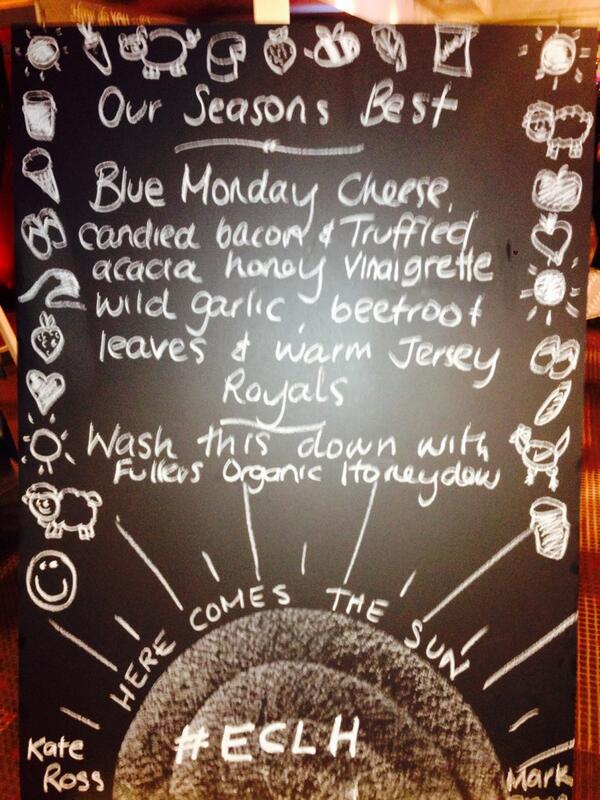 Our Seasons Best
Blue Monday Cheese,
candied bacon & Truffled
acacia honey vinaigrette
wild garlic, beetroot
leaves & warm Jersey
Royals
Wash this down with
Fullers Organic Honeydew
HERE COMES THE SUN
#ECLH
Kate
Ross
Mark